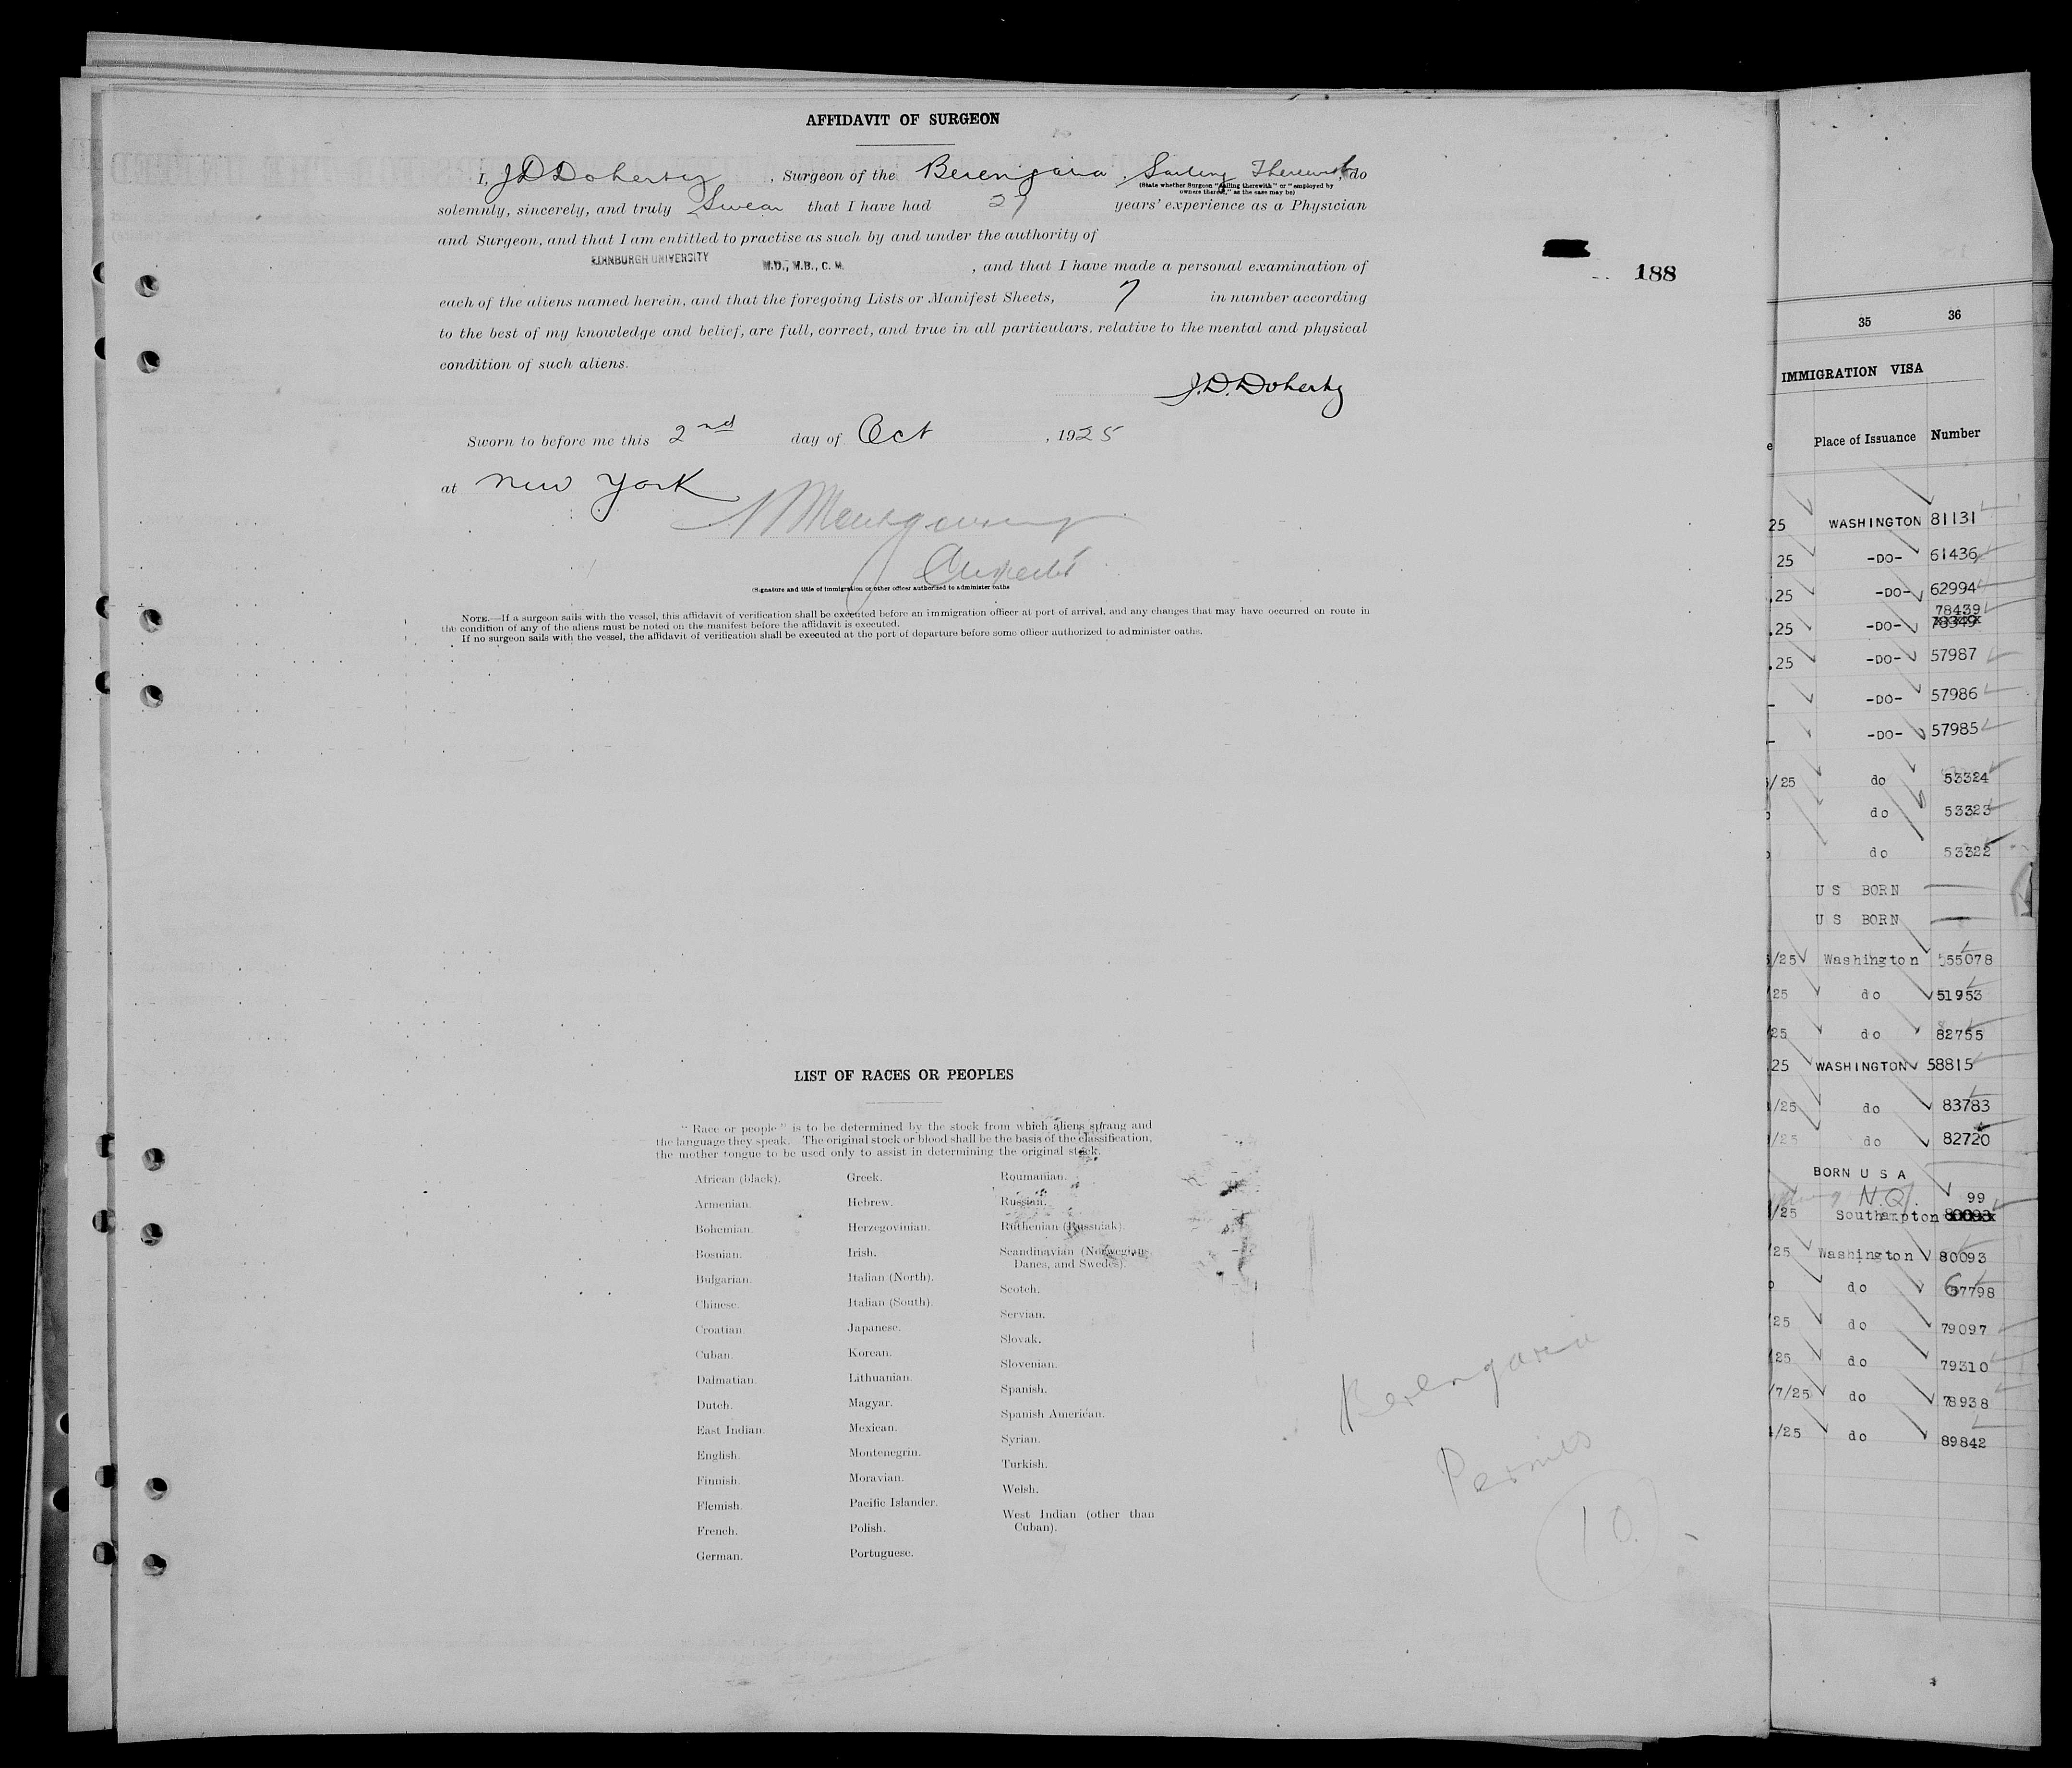 AFFIDAVIT OF SURGEON
I, J D Doherty , Surgeon of the Berengaria , Sailing Therewith, do
(State whether Surgeon "sailing therewith" or "employed by
owners thereof," as the case may be)
solemnly, sincerely, and truly Swear that I have had 27 years' experience as a Physician
and Surgeon, and that I am entitled to practise as such by and under the authority of
EDINBURGH UNIVERSITY M.D., M.B., C. M. , and that I have made a personal examination of
188
each of the aliens named herein, and that the foregoing Lists or Manifest Sheets, 7 in number according
to the best of my knowledge and belief, are full, correct, and true in all particulars, relative to the mental and physical
condition of such aliens.
J. D. Doherty
Sworn to before me this 2nd day of Oct , 1925
at New York
Montgomery
(Signature and title of immigration or other officer authorized to administer oaths
NOTE.—If a surgeon sails with the vessel, this affidavit of verification shall be executed before an immigration officer at port of arrival, and any changes that may have occurred on route in
the condition of any of the aliens must be noted on the manifest before the affidavit is executed.
If no surgeon sails with the vessel, the affidavit of verification shall be executed at the port of departure before some officer authorized to administer oaths.
LIST OF RACES OR PEOPLES
"Race or people" is to be determined by the stock from which aliens sprang and
the language they speak. The original stock or blood shall be the basis of the classification,
the mother tongue to be used only to assist in determining the original stock.
African (black).
Armenian.
Bohemian.
Bosnian.
Bulgarian.
Chinese.
Croatian
Cuban.
Dalmatian.
Dutch.
East Indian.
English.
Finnish.
Flemish.
French.
German.
Greek.
Hebrew.
Herzegovinian.
Irish.
Italian (North).
Italian (South).
Japanese.
Korean.
Lithuanian.
Magyar.
Mexican.
Montenegrin.
Moravian.
Pacific Islander.
Polish.
Portuguese.
Roumanian.
Russian.
Ruthenian (Russniak).
Scandinavian (Norwegian,
Danes, and Swedes).
Scotch.
Servian.
Slovak.
Slovenian.
Spanish.
Spanish American.
Syrian.
Turkish.
Welsh.
West Indian (other than
Cuban).
Berengaria
Permits
10
35 36
IMMIGRATION VISA
Place of Issuance Number
25 WASHINGTON 81131
25 -DO- 61436
.25 -DO- 62994
78439
.25 -DO-
.25 -DO- 57987
-DO- 57986
-DO- 57985
/25 do 53324
do 53323
do 53322
U S BORN
U S BORN
/25 Washington 555078
25 do 51953
25 do 82755
25 WASHINGTON 58815
/25 do 83783
/25 do 82720
BORN U S A
N.Q. 99
/25 Southampton 80093
25 Washington 80093
do 67798
25 do 79097
25 do 79310
/7/25 do 78938
/25 do 89842